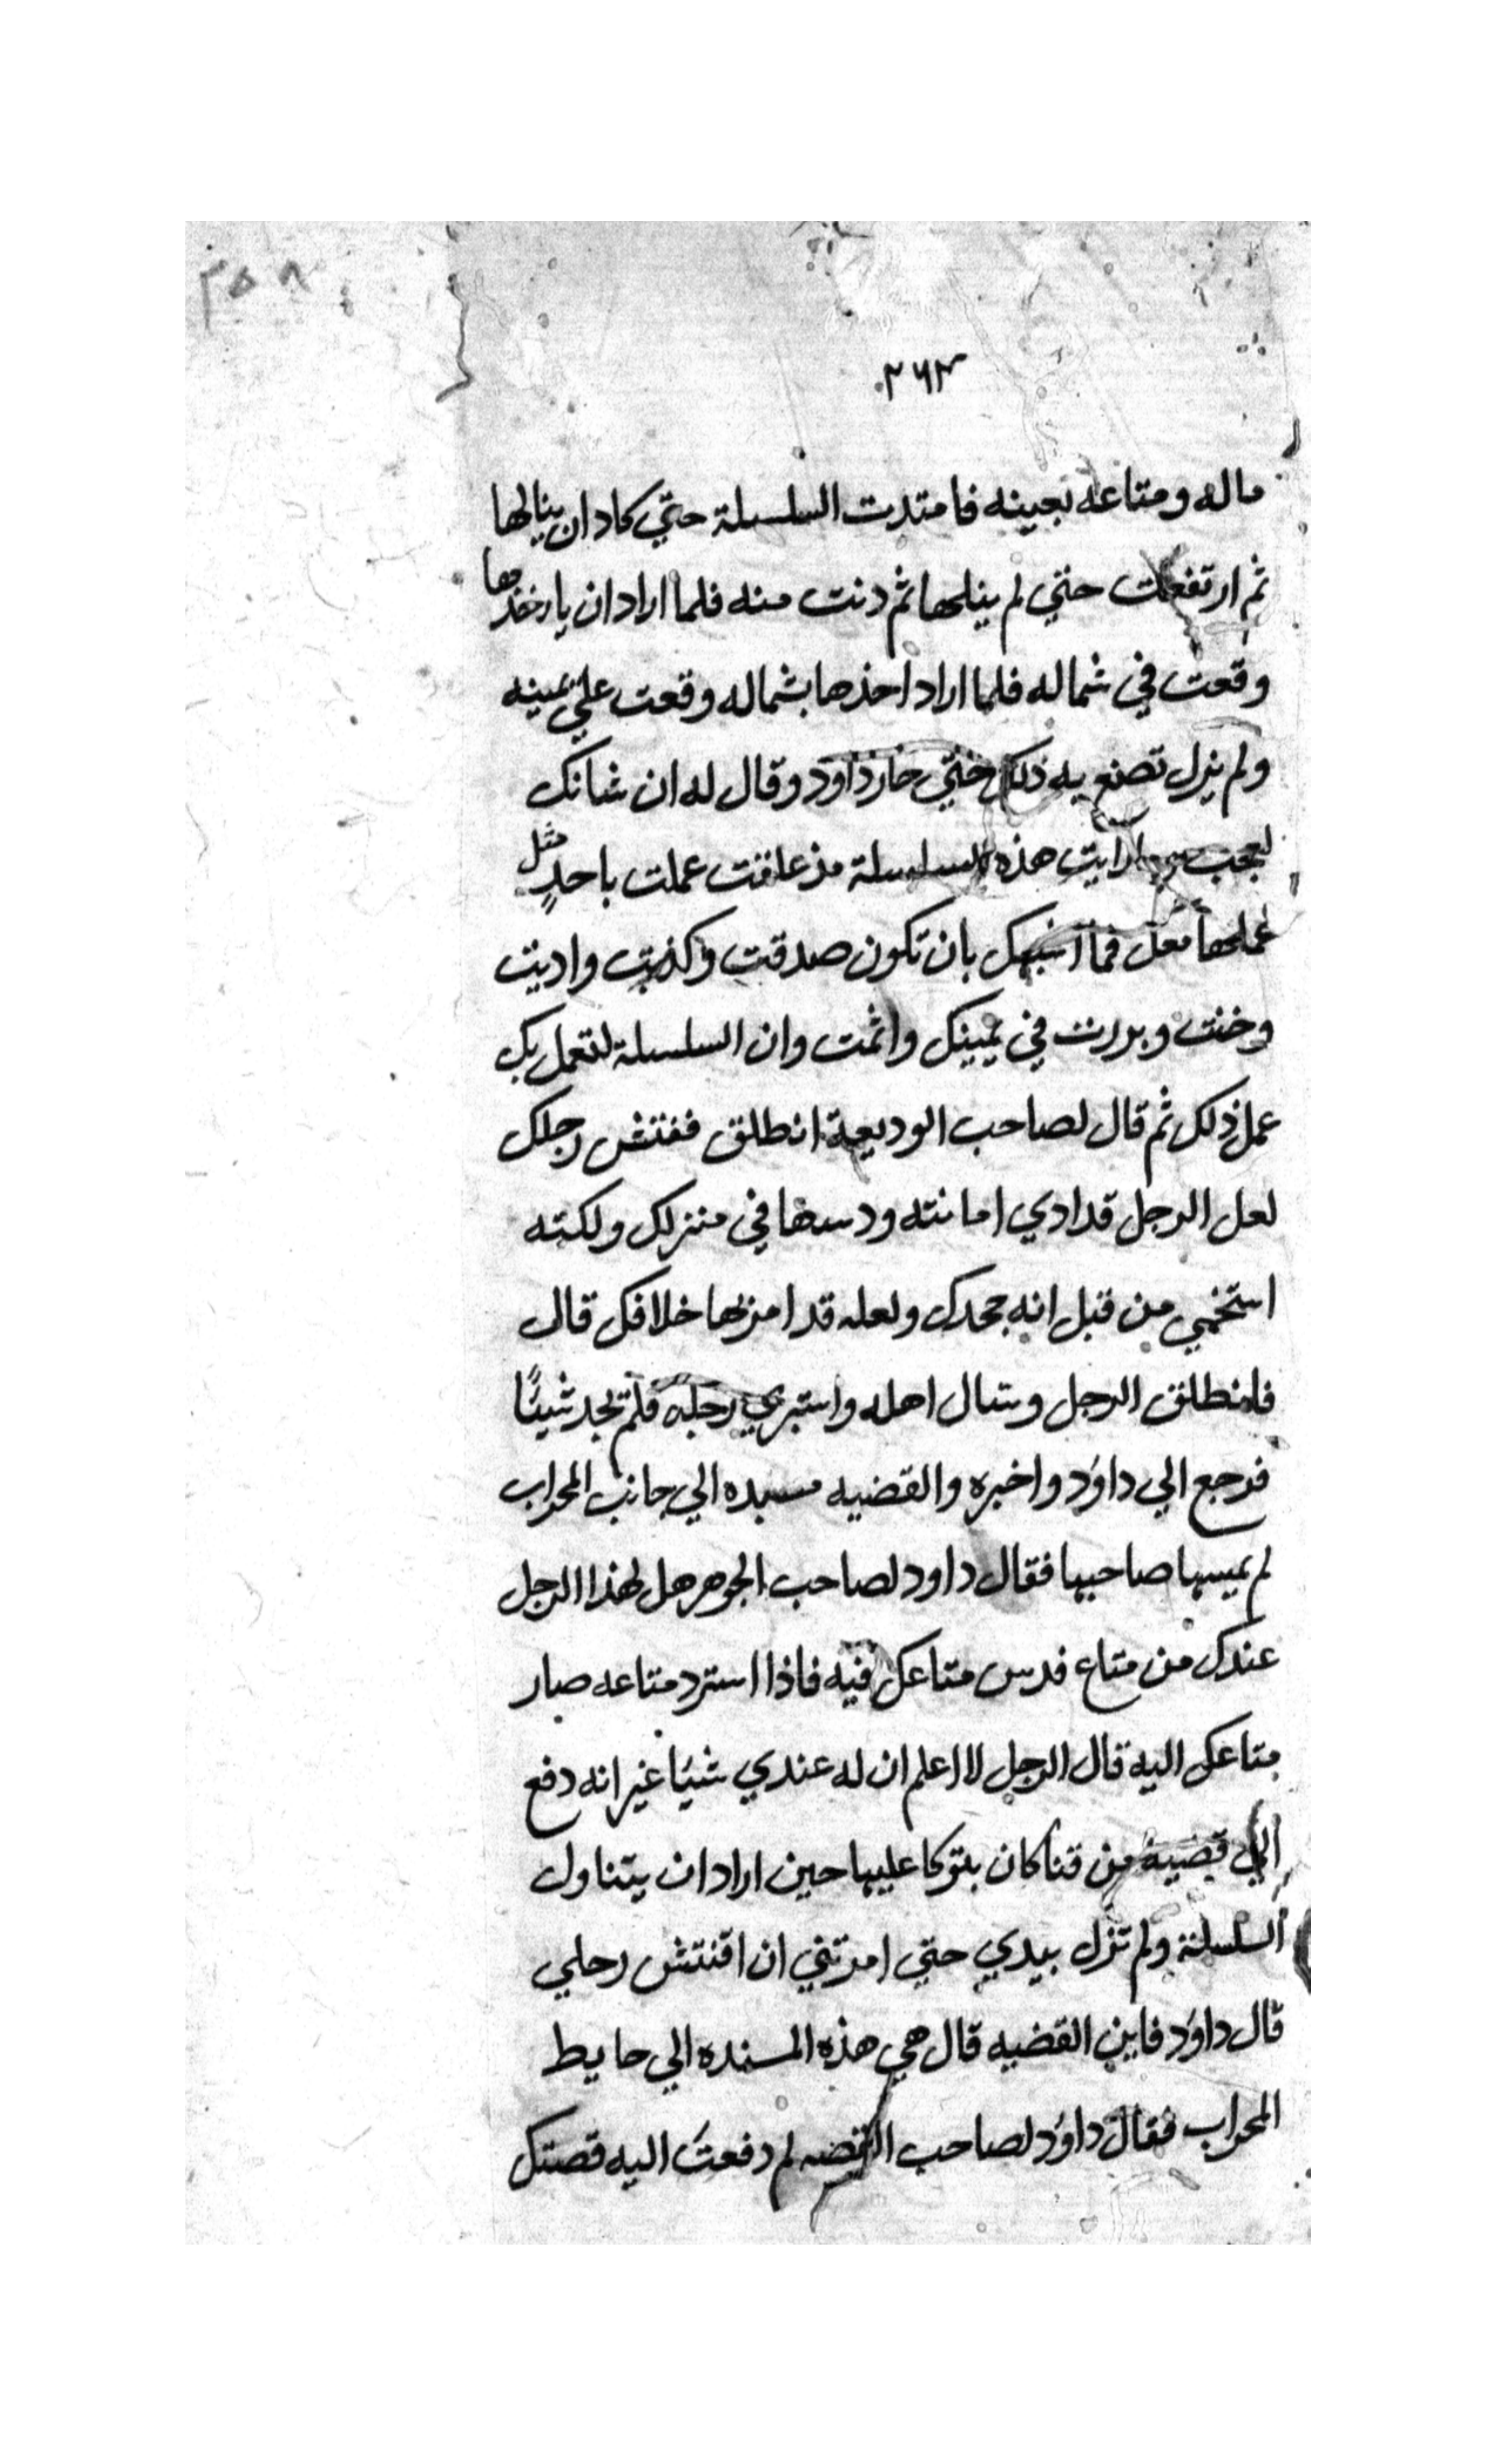 ٣٥٨
٢٦٣
ماله ومتاعه بعينه فامتدت السلسلة حتي كاد ان ينالها
ثم ارتفعت حتي لم ينلها ثم دنت منه فلما اراد ان ياخذها
وقعت في شماله فلما اراد اخذها بشماله وقعت علي يمينه
ولم يزل تصنع به ذلك حتي حار داود وقال له ان شانك
لعجب ما رايت هذه السلسلة مذ علقت عملت باحدٍ مثل
عملها معك فما اشبهك بان تكون صدقت وكذبت واديت
وخنت وبررت في يمينك واثمت وان السلسلة لتعمل بك
عمل ذلك ثم قال لصاحب الوديعة انطلق ففتش رحلك
لعل الرجل قد ادي امانته ودسها في منزلك ولكنه
استخمي من قبل انه جحدك ولعله قد امن بها خلافك قال
فانطلق الرجل وسال اهله واستبري رحله فلم يجد شيئًا
فرجع الي داوُد واخبره والقضيه مسنده الي جانب المحراب
لم يمسها صاحبها فقال داود لصاحب الجوهر هل لهذا الرجل
عندك من متاع فدس متاعك فيه فاذا استرد متاعه صار
متاعك اليه قال الرجل لا اعلم ان له عندي شيًا غير انه دفع
الي قضيبه من قنا كان يتوكا عليها حين اراد ان يتناول
السلسلة ولم تزل بيدي حتي امرتني ان افتش رحلي
قال داوُد فاين القضيه قال هي هذه المسنده الي حايط
المحراب فقال داوُد لصاحب القضيه لم دفعتَ اليه قصبتك